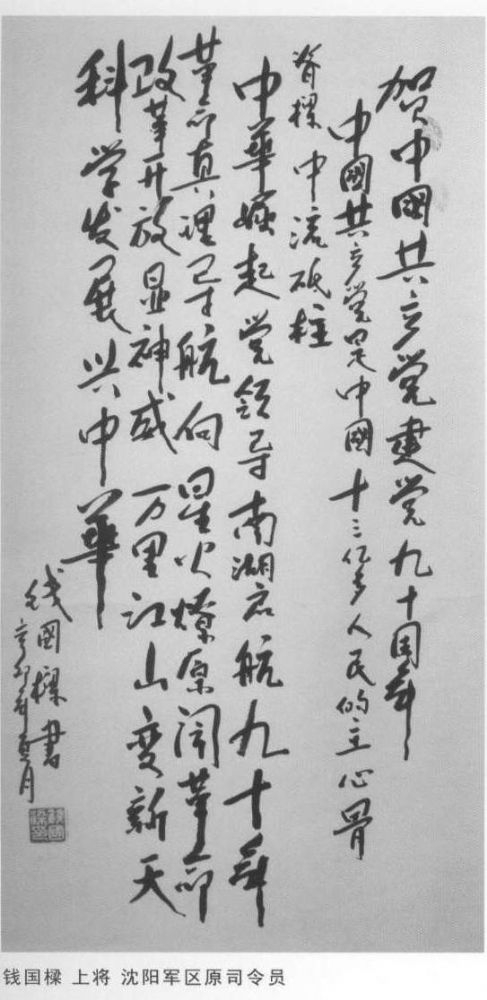 贺中國共产党建党九十周年
中國共产党是中國十三亿多人民的主心骨
脊樑 中流砥柱
中華崛起党領导南湖启航九十年
革命真理导航向 星火燎原闹革命
改革开放显神威 万里江山变新天
科学发展兴中華
钱國樑書
辛卯年夏月
钱国樑 上将 沈阳军区原司令员